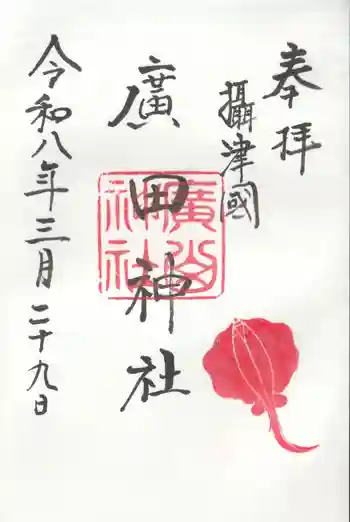 奉拝
攝津國
廣田神社
令和八年三月二十九日